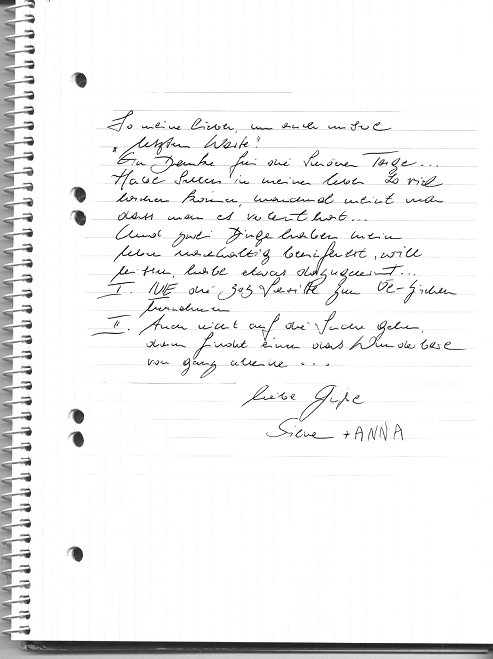 So meine Lieben, nun auch unsre
"letzten Worte"!
Ein Danke für die schönen Tage...
Habe selten in meinem Leben so viel
lachen können, manchmal meint man
dass man es verlernt hat...
Und zwei Dinge haben mein
Leben nachhaltig, will
heissen, habe etwas dazugelernt...
I. NIE die
benutzen
II. Auch nicht auf die Suche gehen,
dann findet einen das Wunderbare
von ganz alleine...
Liebe Grüße
+ ANNA